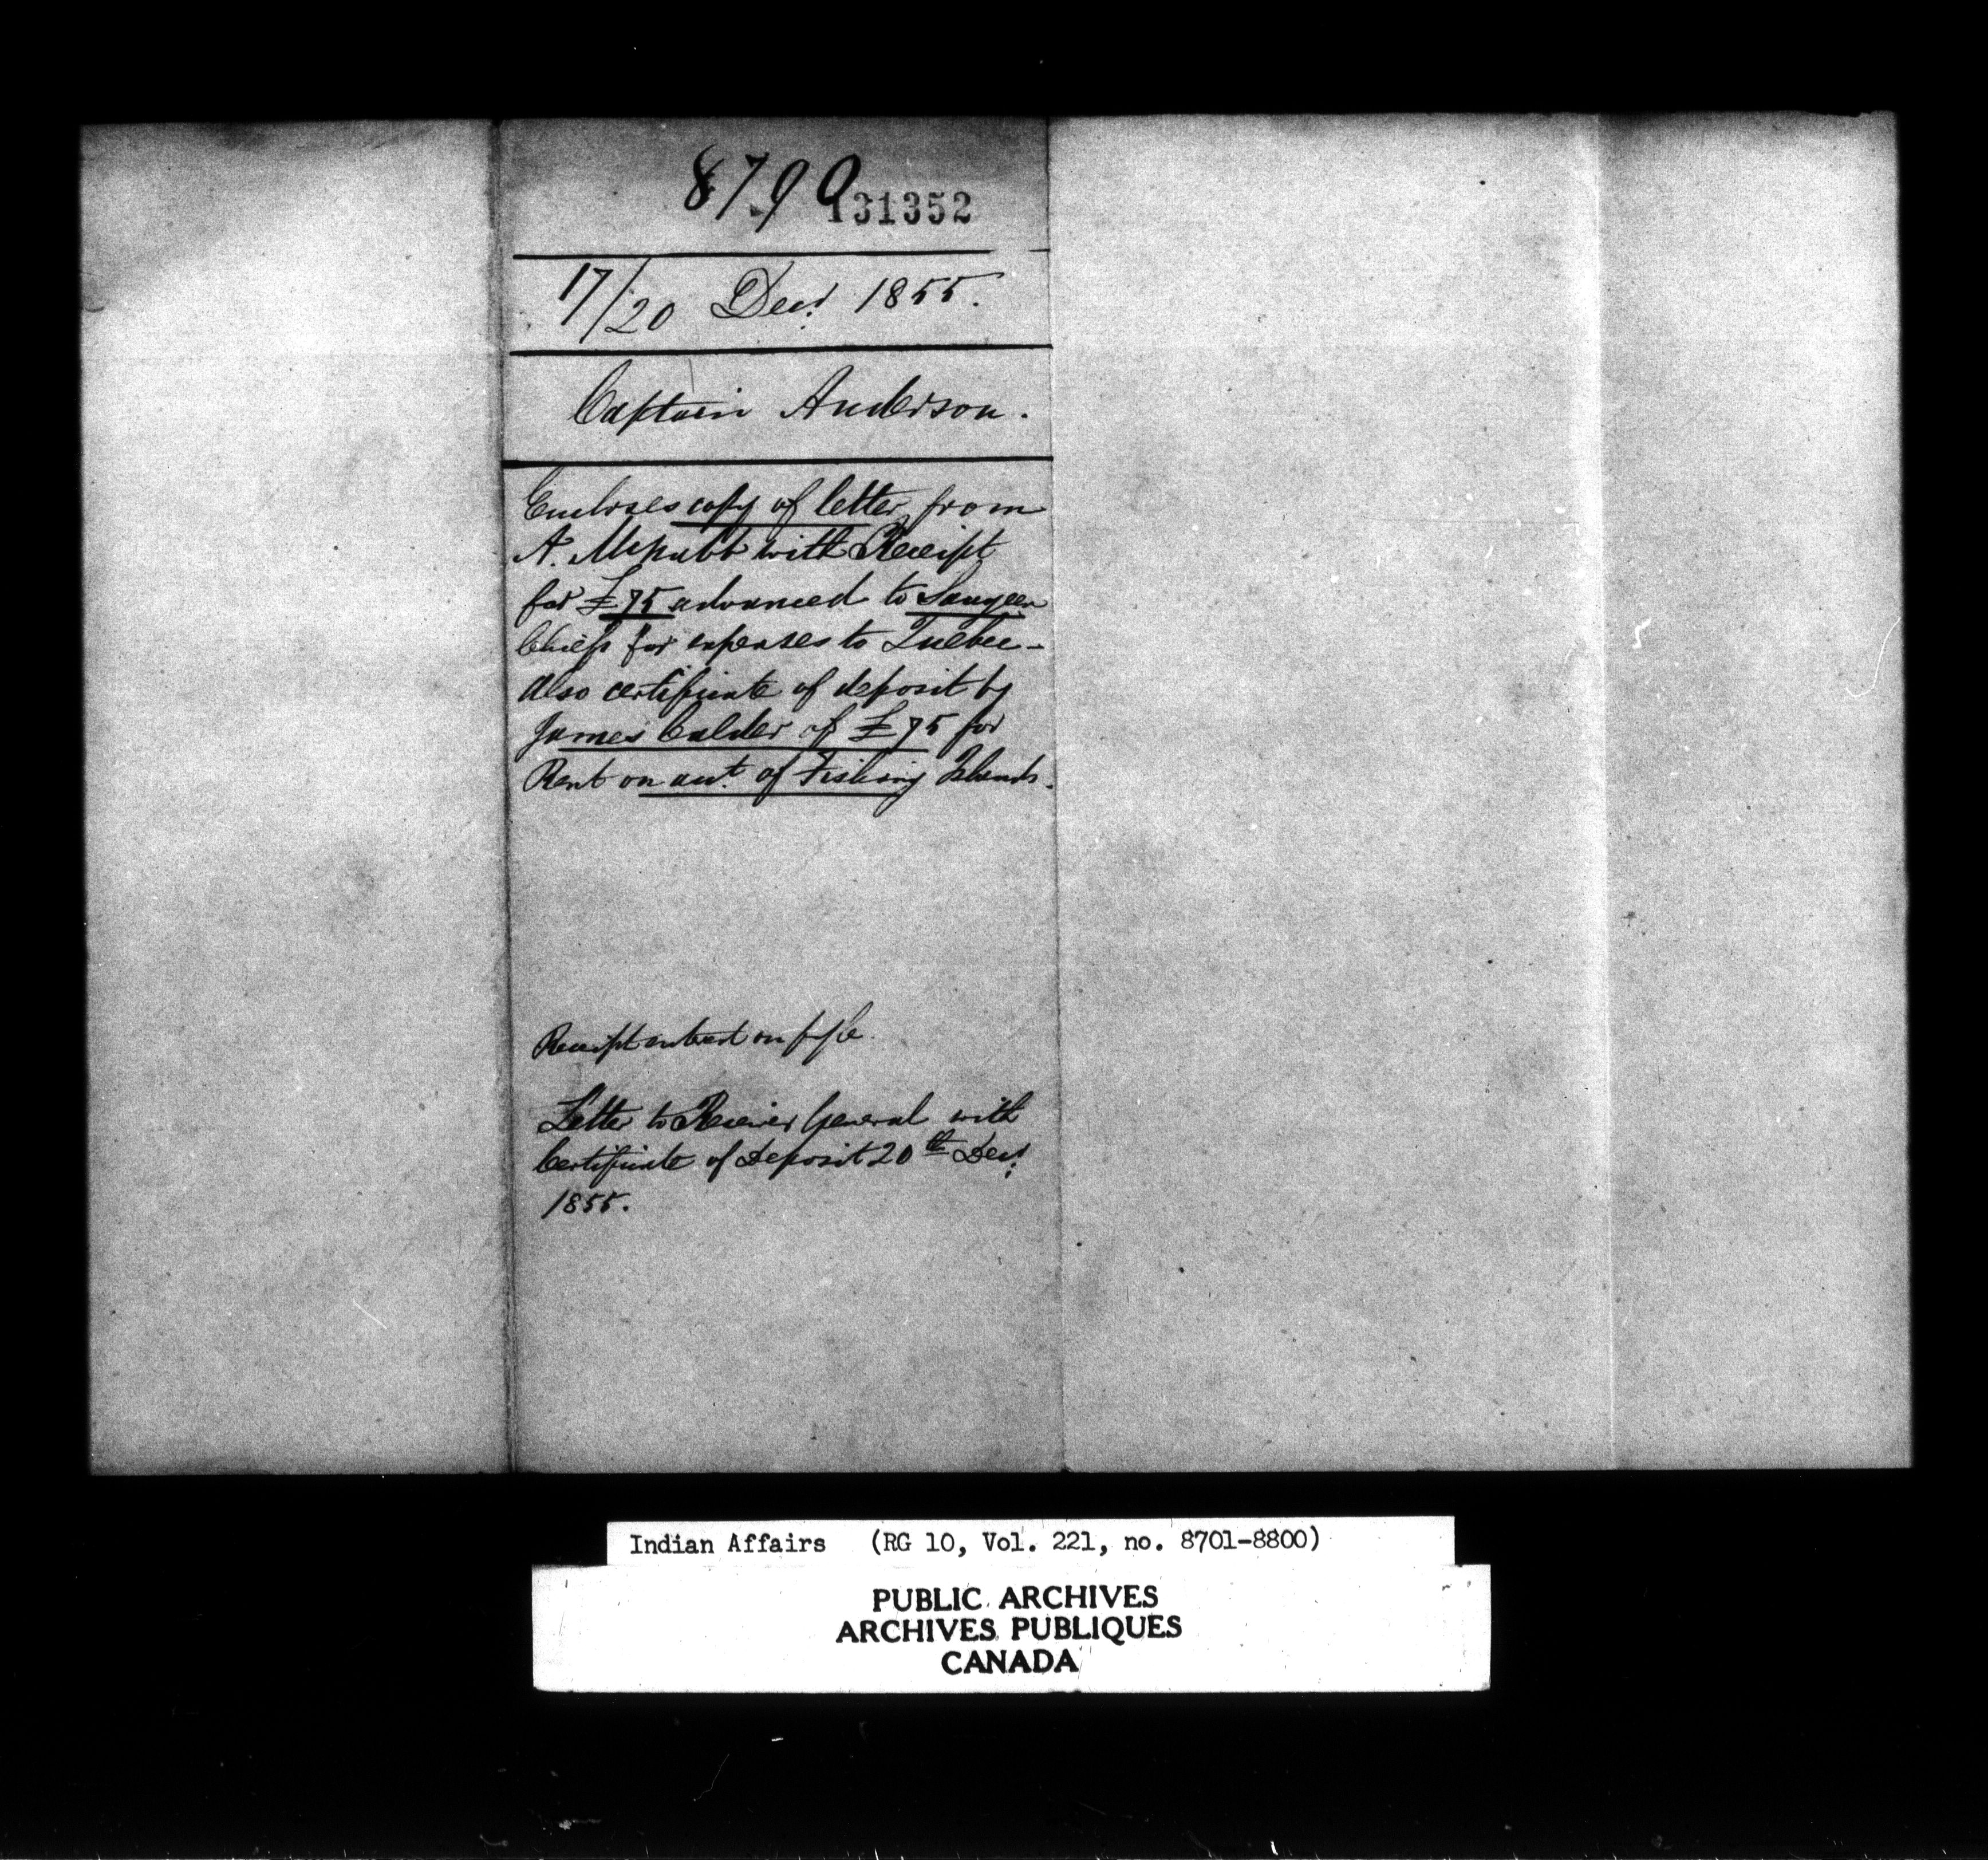 8790
131352
17/20 Decr 1855.
Captain Anderson.
Encloses copy of letter from
A. McNabb with Receipt
for £75 advanced to Saugeen
Chiefs for expenses to Quebec -
Also certificate of deposit by
James Calder of £75 for
Rent on acct. of Fishing Islands.
Receipt on file
Letter to Receiver General with
Certificate of Deposit 20th Decr
1855.
Indian Affairs (RG 10, Vol. 221, no. 8701-8800)
PUBLIC ARCHIVES
ARCHIVES PUBLIQUES
CANADA